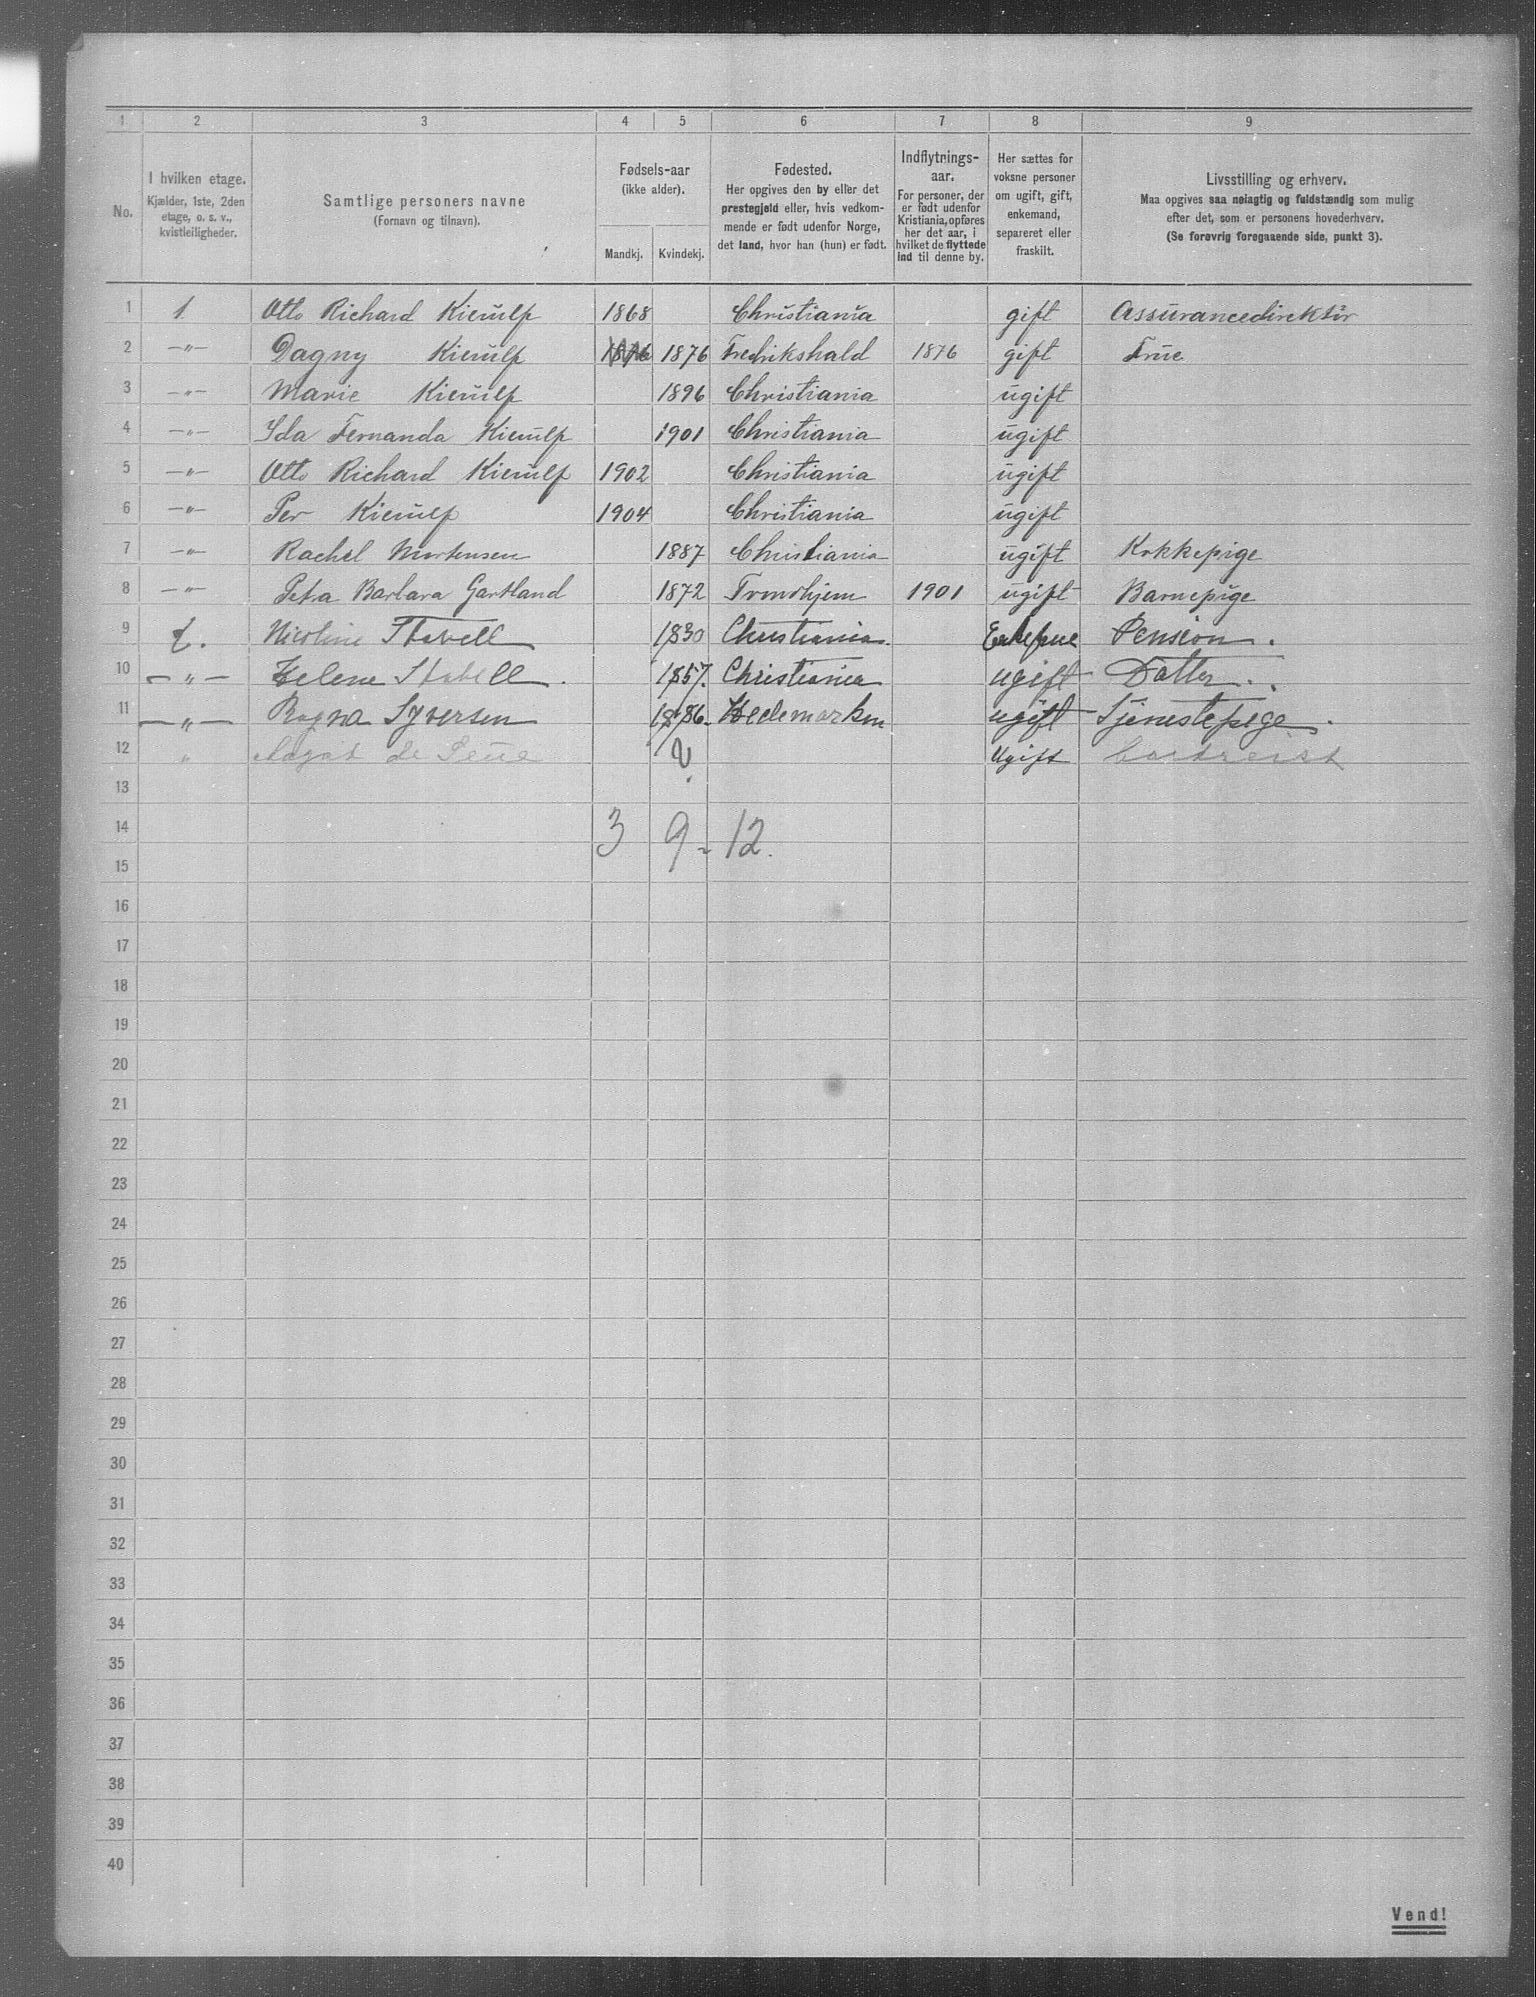 1 2 3 4 5 6 7 8 9
No.
I hvilken etage.
Kjælder, 1ste, 2den
etage, o. s. v.,
kvistleiligheder.
Samtlige personers navne
(Fornavn og tilnavn).
Fødsels-aar
(ikke alder).
Mandkj. Kvindekj.
Fødested.
Her opgives den by eller det
prestegjeld eller, hvis vedkom-
mende er født udenfor Norge,
det land, hvor han (hun) er født.
Indflytnings-
aar.
For personer, der
er født udenfor
Kristiania, opføres
her det aar, i
hvilket de flyttede
ind til denne by.
Her sættes for
voksne personer
om ugift, gift,
enkemand,
separeret eller
fraskilt.
Livsstilling og erhverv.
Maa opgives saa nøiagtig og fuldstændig som mulig
efter det, som er personens hovederhverv.
(Se forøvrig foregaaende side, punkt 3).
1 1 Otto Richard Kierulf 1868 Christiania gift Assurancedirektør
2 —"— Dagny Kierulf 1876 1876 Fredrikshald 1876 gift Frue
3 —"— Marie Kierulf 1896 Christiania ugift
4 —"— Ida Fernanda Kierulf 1901 Christiania ugift
5 —"— Otto Richard Kierulf 1902 Christiania ugift
6 —"— Per Kierulf 1904 Christiania ugift
7 —"— Rachel Mortensen 1887 Christiania ugift Kokkepige
8 —"— Petra Barbara Gartland 1872 Trondhjem 1901 ugift Barnepige
9 Nicoline Stabell 1830 Christiania. Enkefrue Pension.
10 —"— Helene Stabell. 1857. Christiania ugift Datter.
11 —"— Ragna Syversen 1886. Hedemarken ugift Tjenestepige.
12 " de Seue ? Ugift bortreist
13
14 3 9 - 12.
15
16
17
18
19
20
21
22
23
24
25
26
27
28
29
30
31
32
33
34
35
36
37
38
39
40
Vend!